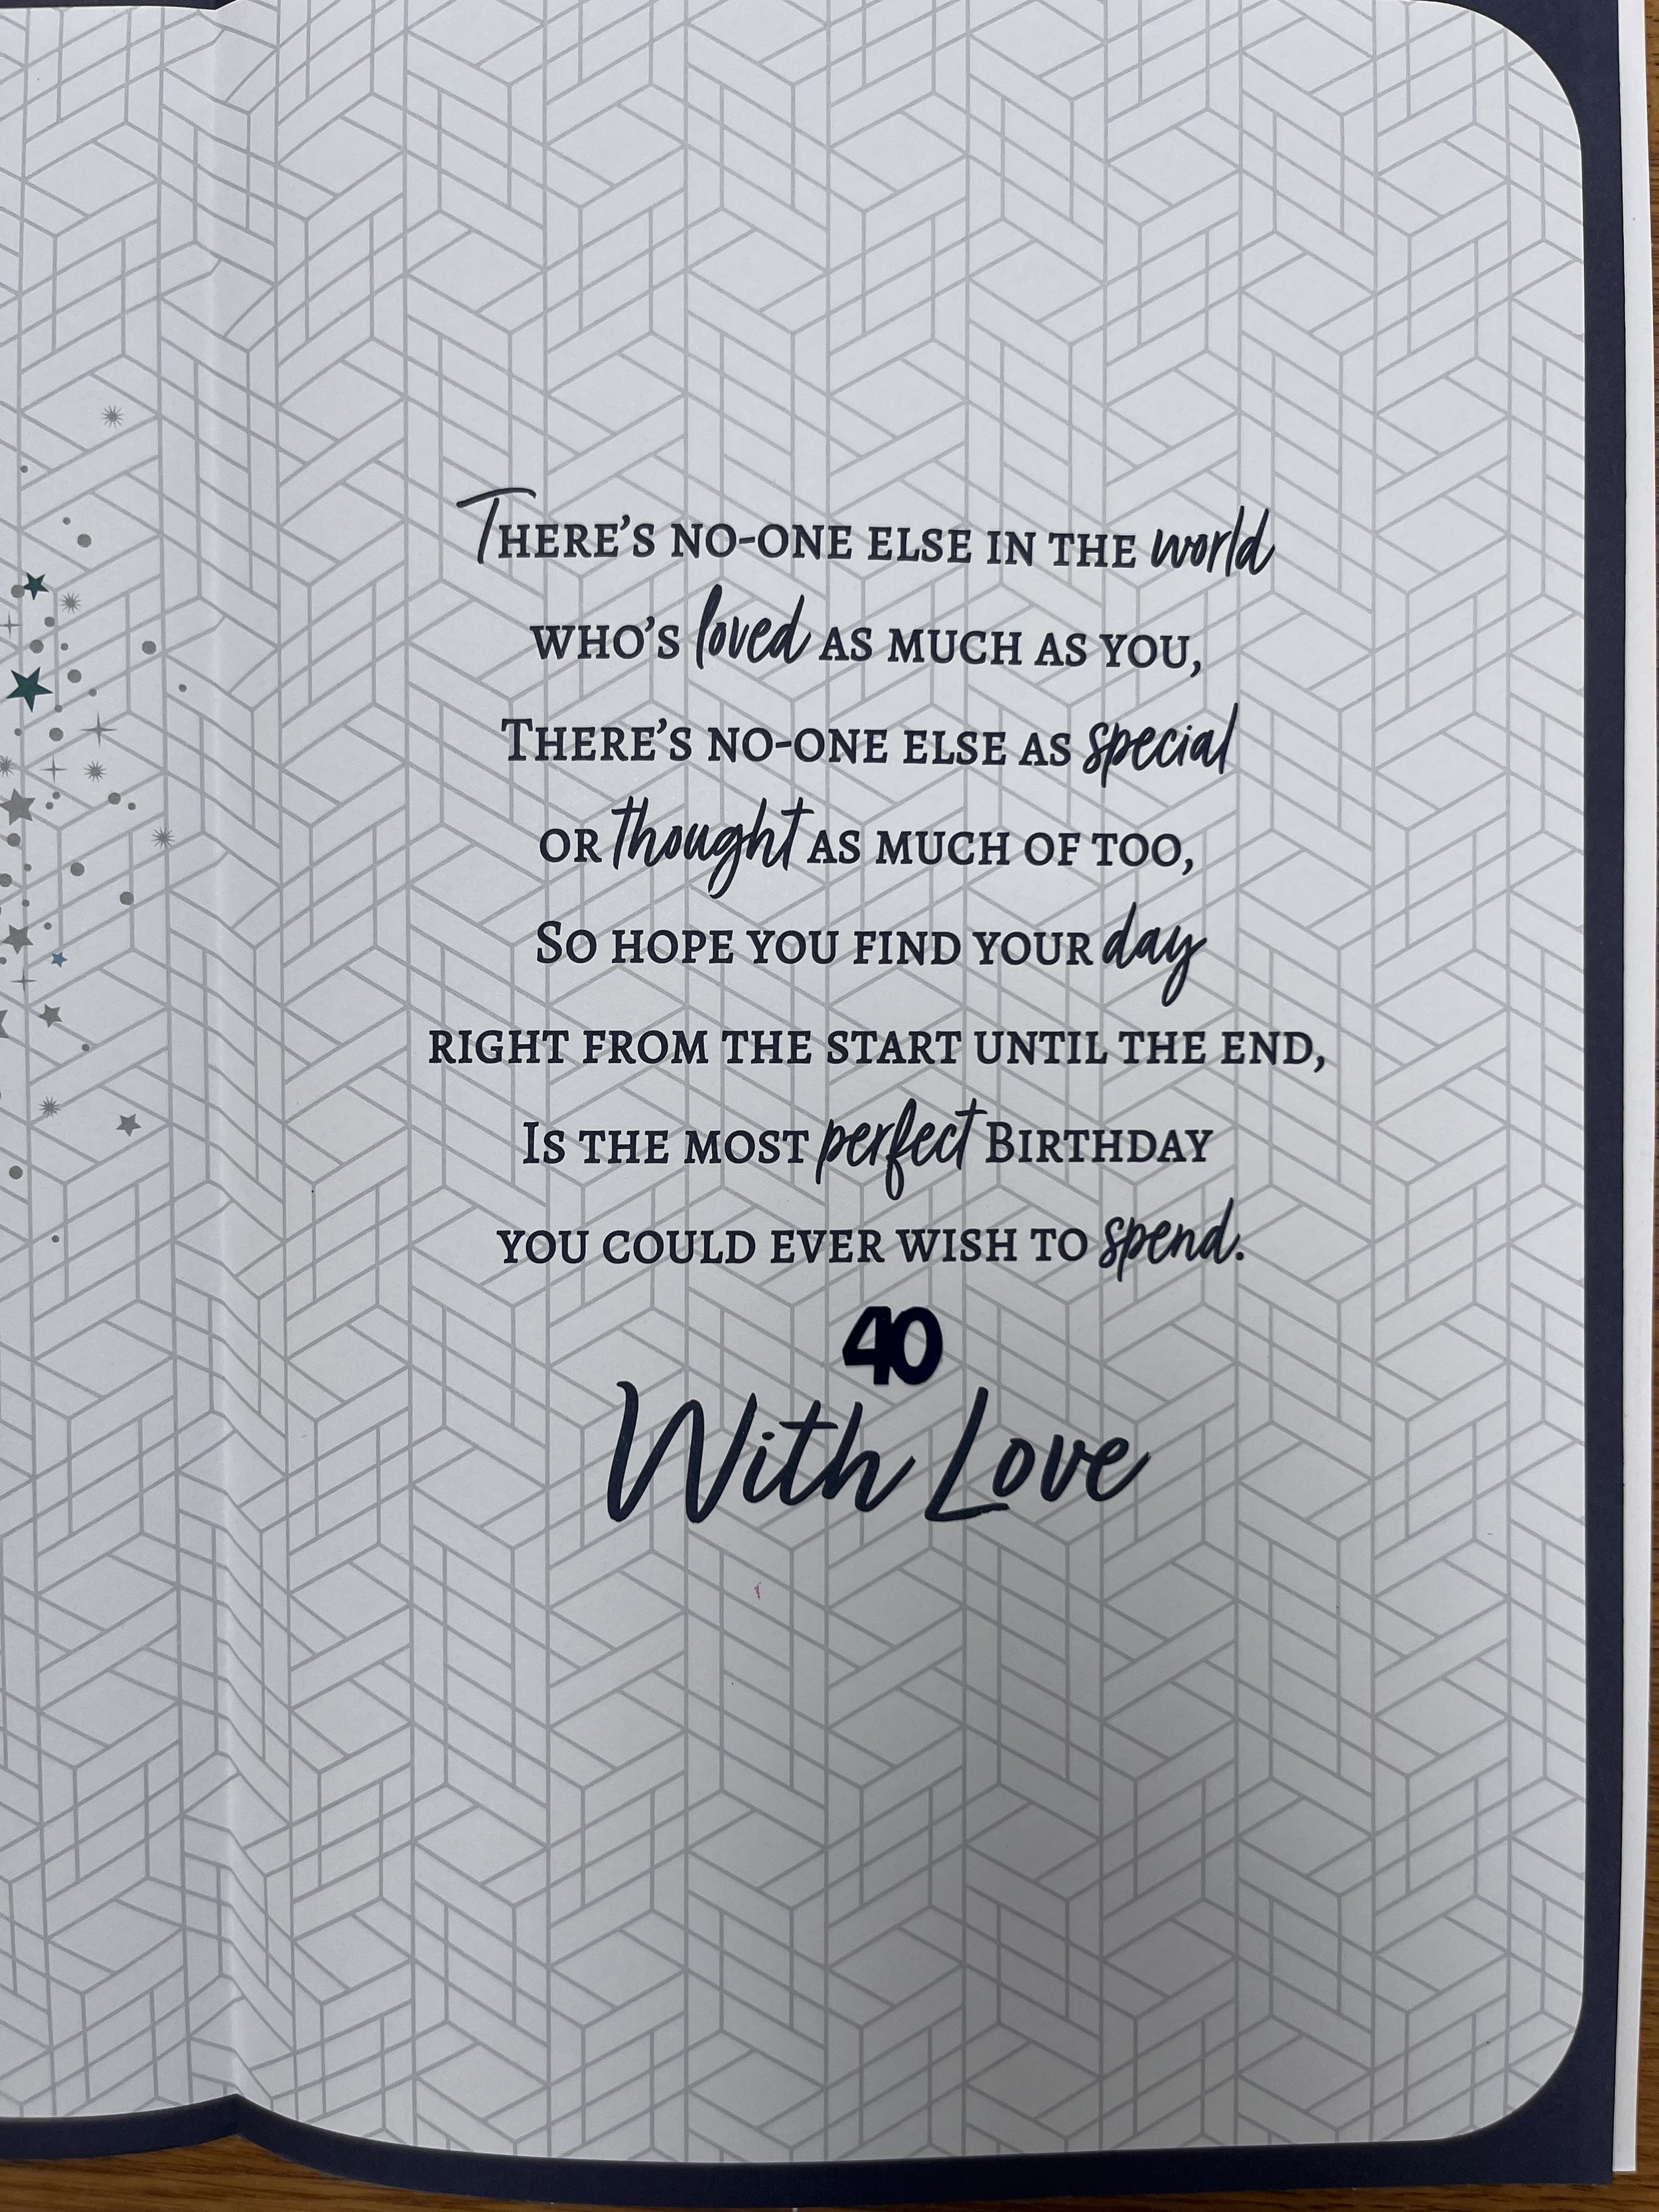 There's no-one else in the world
who's loved as much as you,
There's no-one else as special
or thought as much of too,
So hope you find your day
right from the start until the end,
Is the most perfect Birthday
you could ever wish to spend.
40
With Love